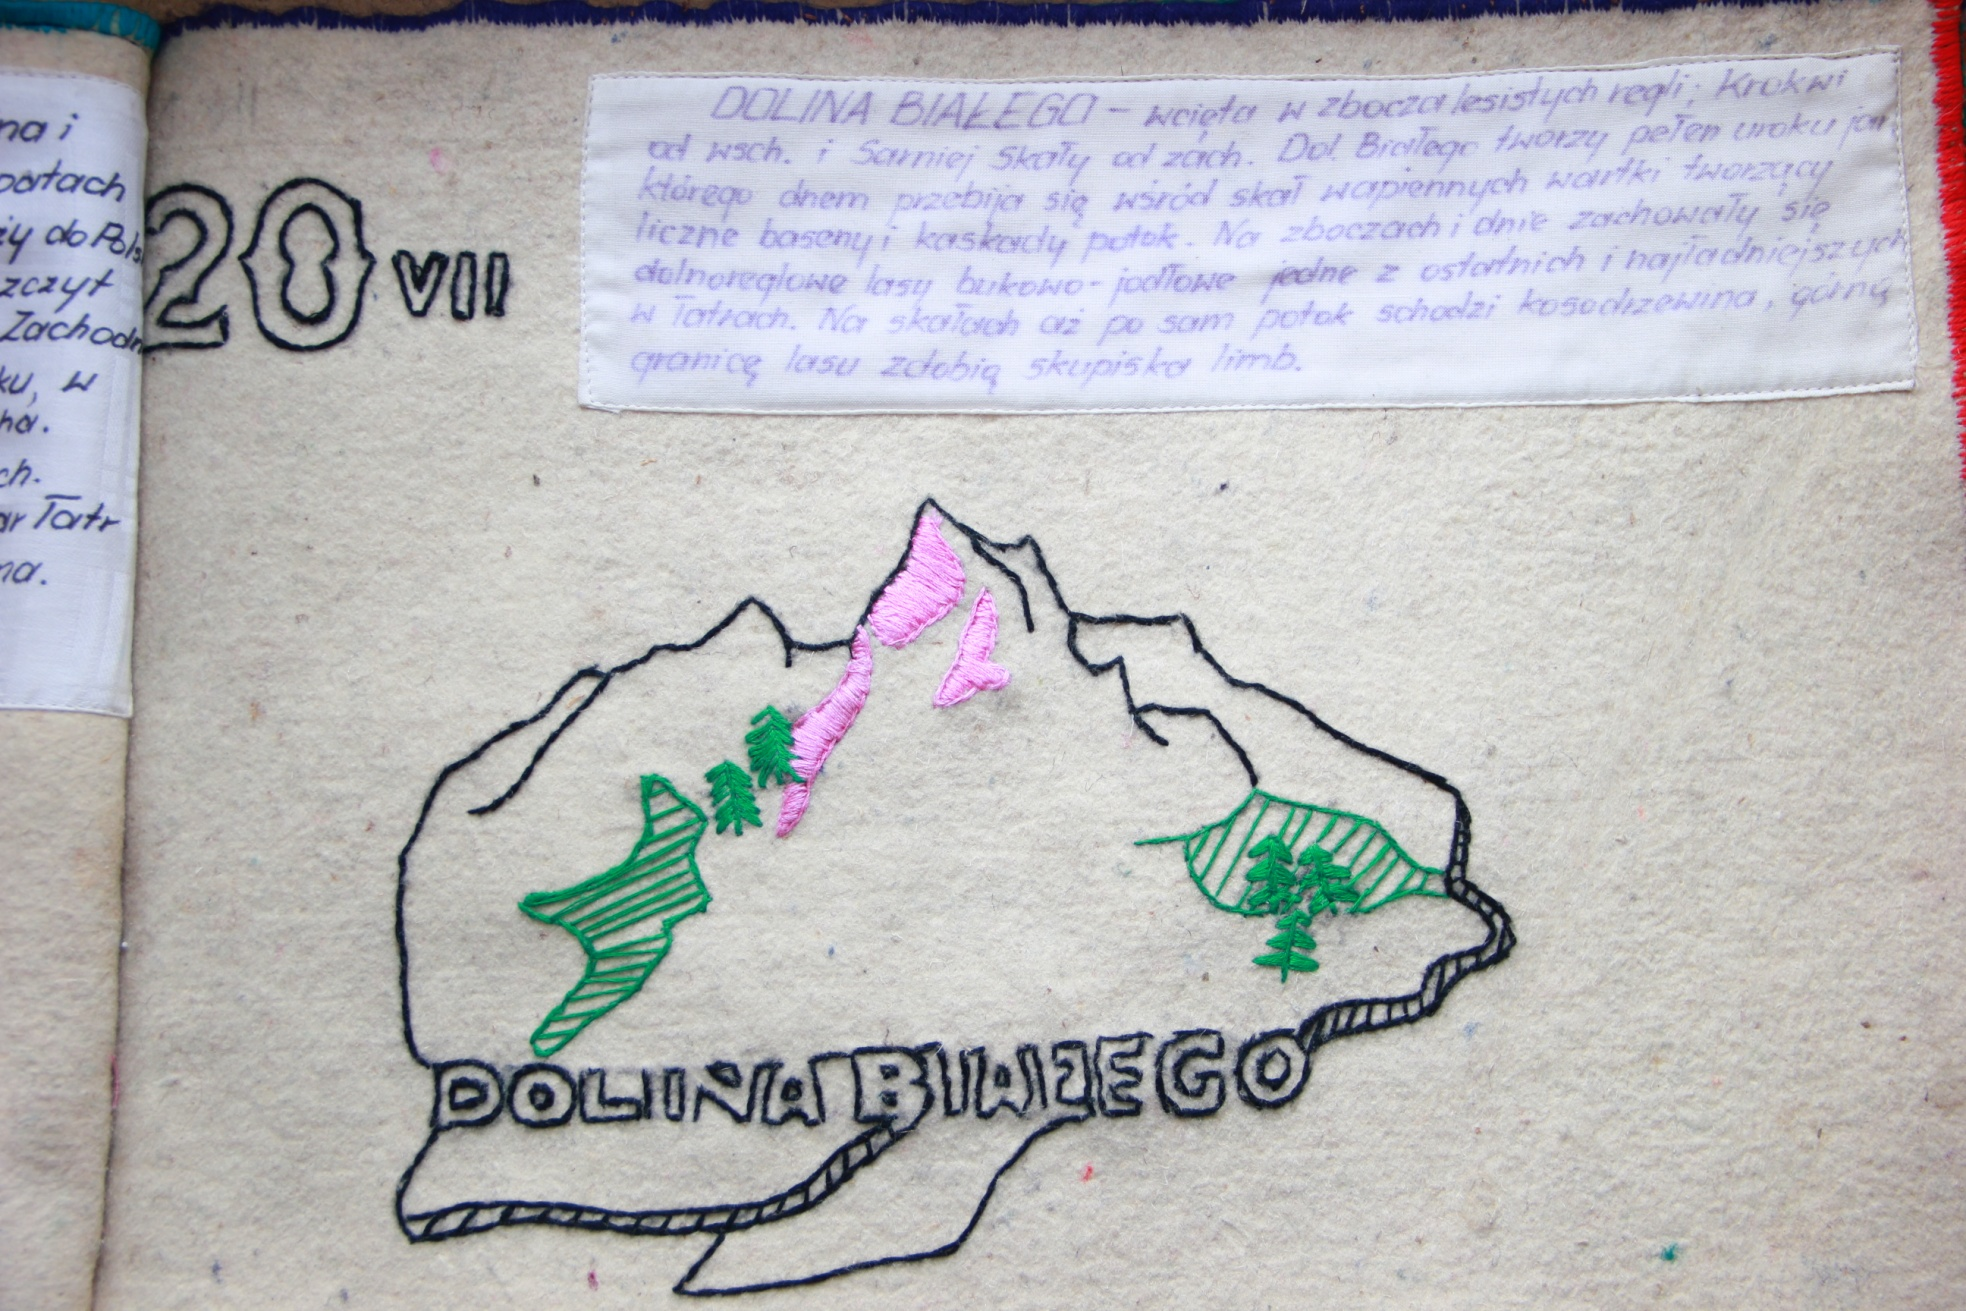 na i
portach
ży do Pols
zczyt
Zachodn
ku, w
cha.
ch.
ar Tatr
na.
20 VII
DOLINA BIAŁEGO - wcięta w zbocza lesistych regli; Krokwi
od wsch. i Sarniej Skały od zach. Dol. Białego tworzy pełen uroku jar,
którego dnem przebija się wśród skał wapiennych wartki tworzący
liczne baseny i kaskady potok. Na zboczach i dnie zachowały się
dolnoreglowe lasy bukowo-jodłowe jedne z ostatnich i najładniejszych
w Tatrach. Na skałach aż po sam potok schodzi kosodrzewina, górną
granicę lasu zdobią skupiska limb.
DOLINA BIAŁEGO